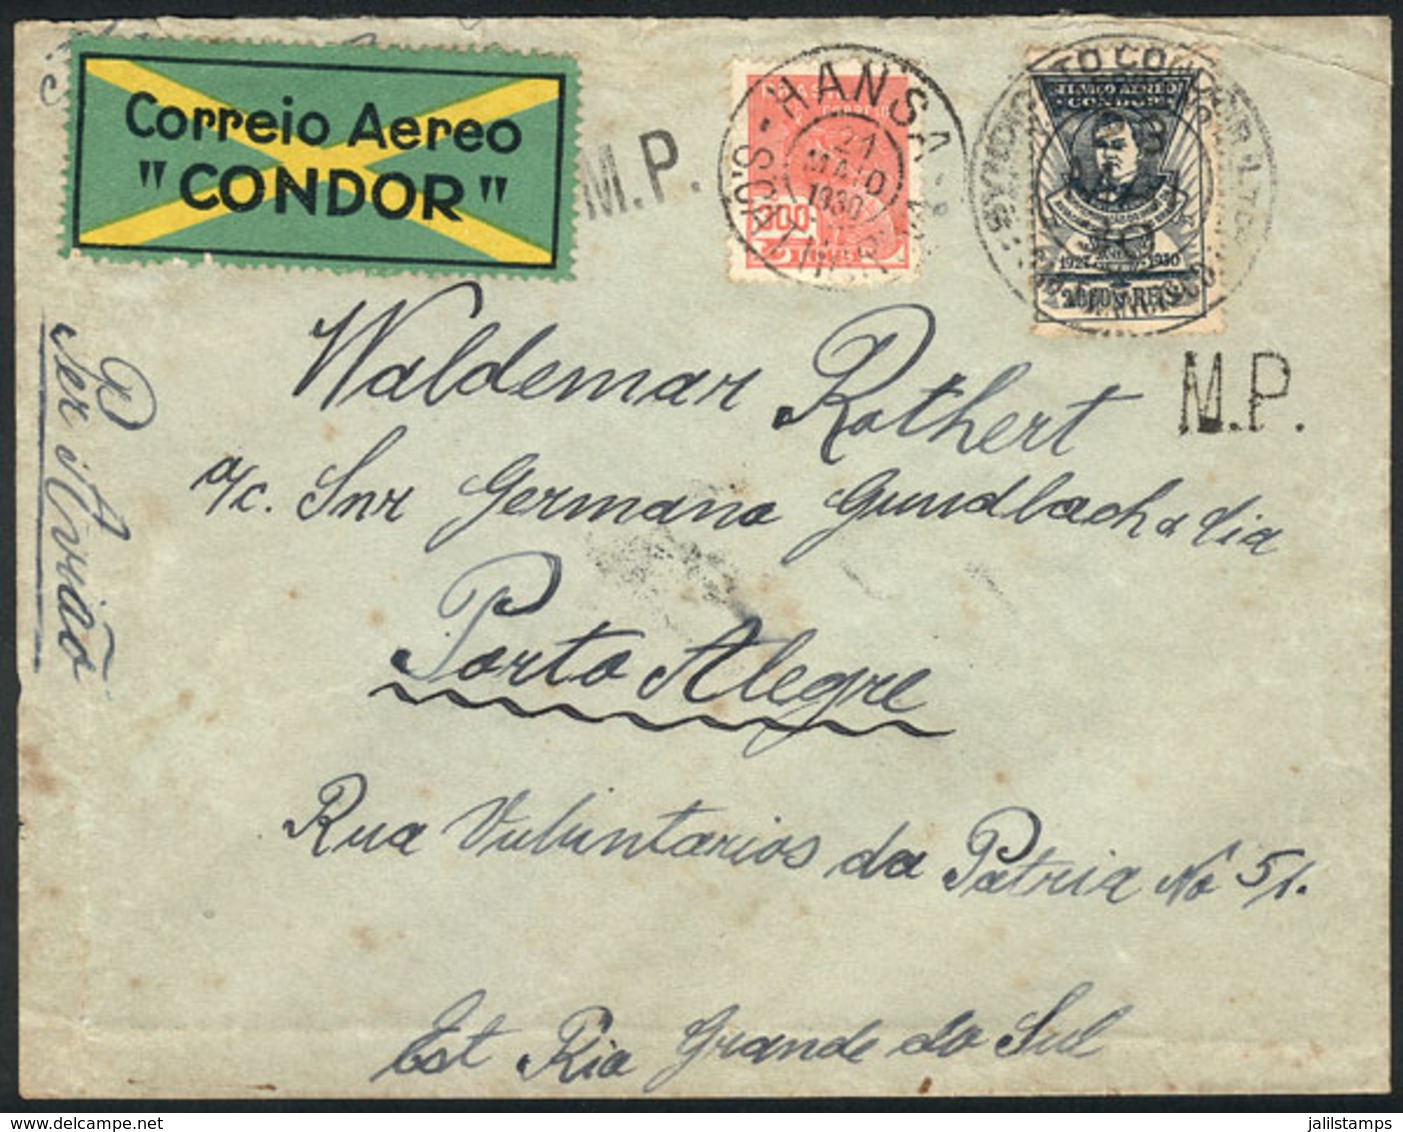 Correio Aereo
"CONDOR"
M.P.
HANSA
21
MAIO
1930
300
SERVIÇO AEREO
CONDOR
1927 1930
2000 REIS
SYNDICATO CONDOR LTDA
M.P.
Per Avião
Waldemar Rothert
a/c. Snr Germano Gundlach & Cia
Porto Alegre
Rua Vuluntarios da Patria No 51.
Est Rio Grande do Sul
jalilstamps